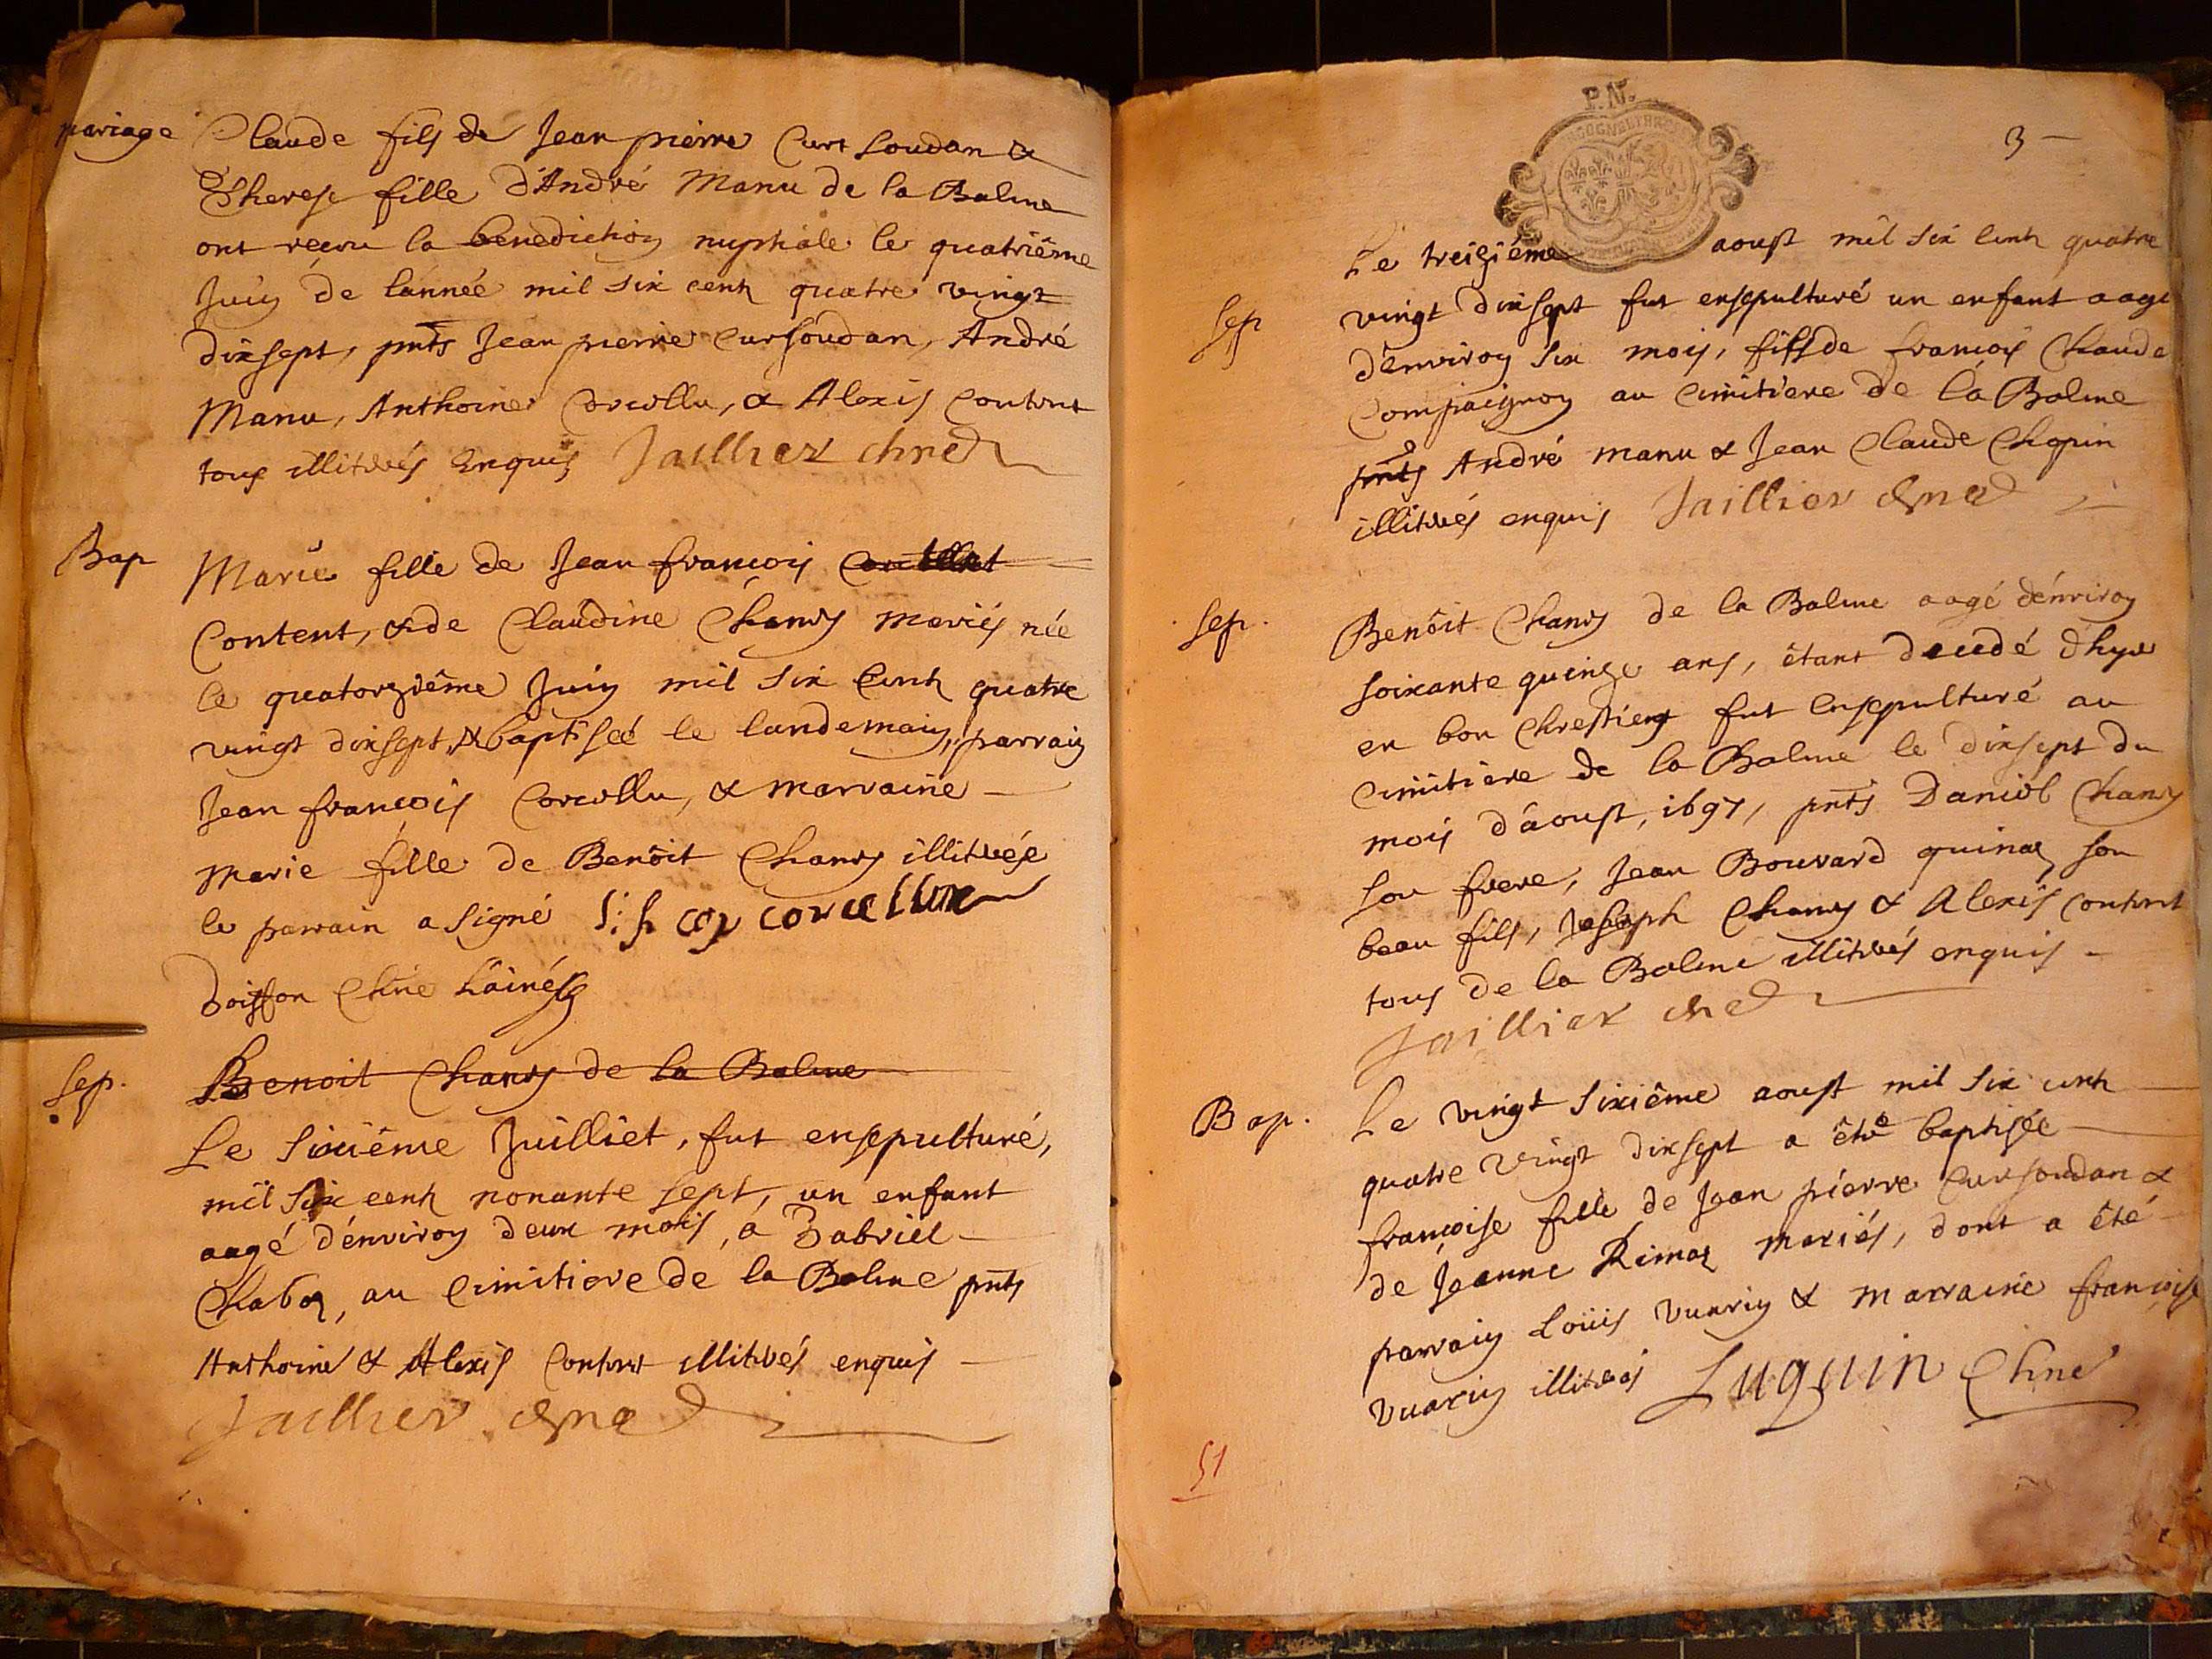 mariage
Claude fils de Jean pierre Curt soudan &
Therese fille d'André Manu de la Balme
ont receu la benediction nuptiale le quatriême
Juin de l'année mil six cents quatre vingt
dixsept, pnts Jean pierre Cursoudan, André
Manu, Anthoine Corcellu, & Alexis Content
tous illiterés Enquis Jaillier chne
Bap
Marie fille de Jean francois
Content, & de Claudine Chanvy mariés née
le quatorziême Juin mil six Cents quatre
vingt dixsept, & baptisée le landemain, parrain
Jean francois Corcellu, & marraine
Marie fille de Benôit Chanvy illiterée
le parrain a signé corcellu
boisson Chne
Sep.
Benoit Chanvy de la Balme
Le sixiême Juilliet, fut ensepulturé,
mil six cents nonante sept, un enfant
aagé d'environ deux mois, a Gabriel
Chaboz, au Cimitiere de la Balme pnts
Anthoine & Alexis Content illiterés enquis
Jaillier chne
P.N.
3
Le treiziéme aoust mil six Cents quatre
Sep
vingt dixsept fut ensepulturé un enfant aagé
d'environ six mois, fils de francois Claude
Compaignon au Cimitiere de la Balme
pnts André Manu & Jean Claude Chapin
illiterés enquis Jaillier chne
Sep.
Benôit Chanvy de la Balme aagé d'environ
soixante quinze ans, êtant decedé d'hyer
en bon Chrestien fut Ensepulturé au
Cimitiere de la Balme le dixsept du
mois d'aoust, 1697, pnts Daniel Chanvy
son frere, Jean Bouvard quinaz son
beau fils, Joseph Chanvy & Alexis Content
tous de la Balme illiterés enquis
Jaillier chne
Bap.
Le vingt sixiême aoust mil six cents
quatre vingt dixsept a êté baptisée
francoise fille de Jean pierre Cursoudan &
de Jeanne Rimaz mariés, dont a êté
parrain Loüis Vuarin & marraine francoise
Vuarin illiterés Luguin Chne
51